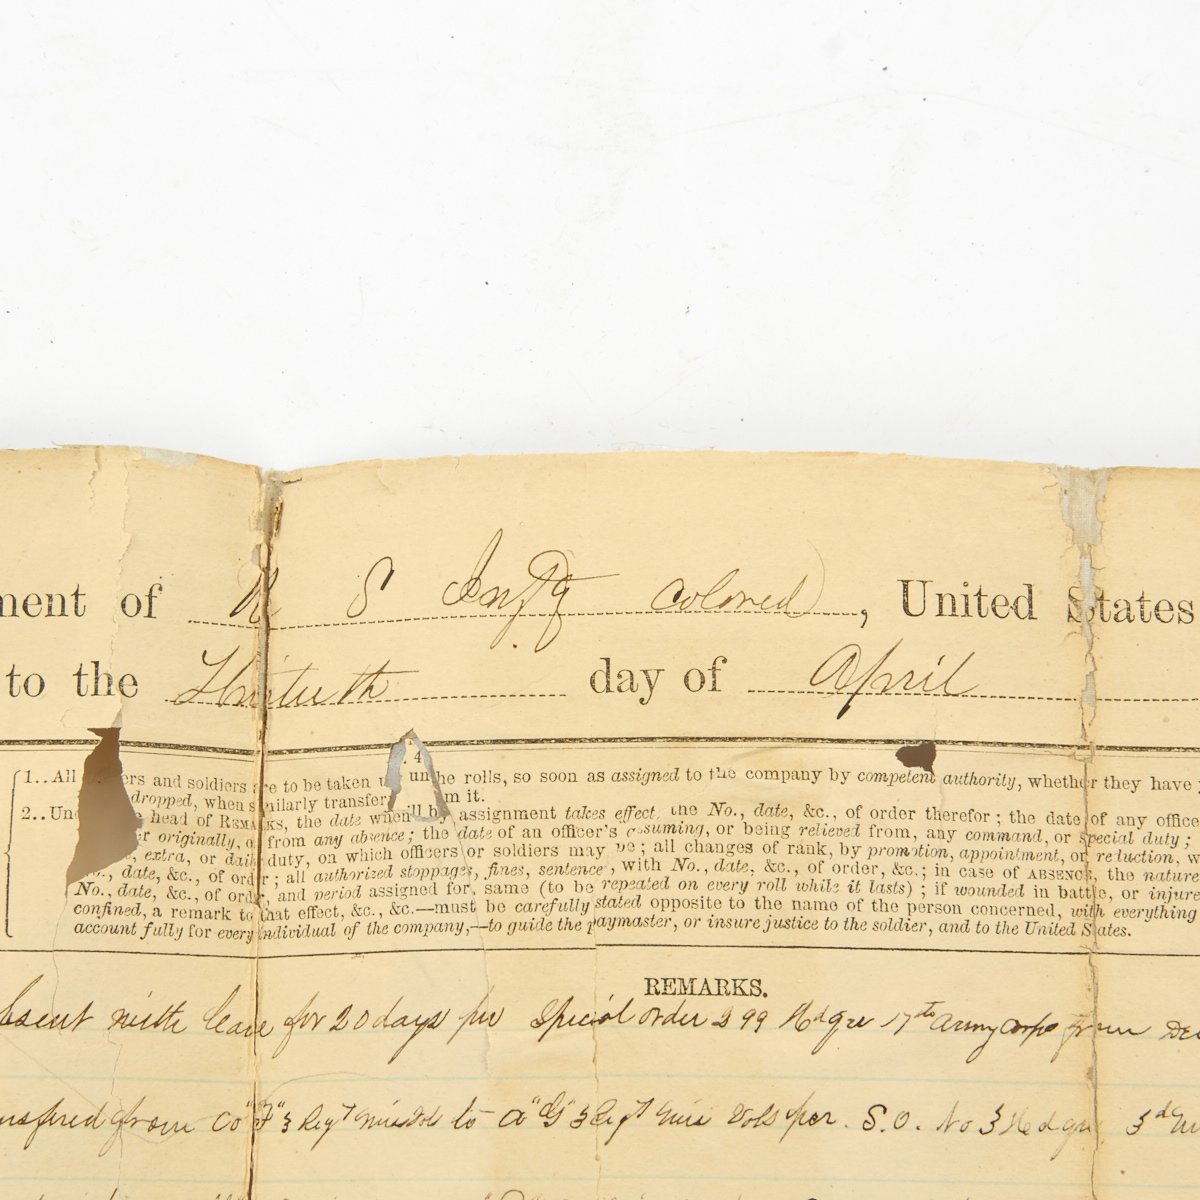 ment of U S Infty Colored), United States
to the Thirtieth day of April
1..All ers and soldiers are to be taken un the rolls, so soon as assigned to the company by competent authority, whether they have
dropped, when similarly transfer m it.
2..Und head of REMARKS, the date when assignment takes effect, the No., date, &c., of order therefor; the date of any office
r originally, or from any absence; the date of an officer's assuming, or being relieved from, any command, or special duty;
, extra, or daily duty, on which officers or soldiers may be; all changes of rank, by promotion, appointment, or reduction, w
No., date, &c., of order; all authorized stoppages, fines, sentence, with No., date, &c., of order, &c.; in case of ABSENCE, the nature
No., date, &c., of order, and period assigned for, same (to be repeated on every roll while it lasts); if wounded in battle, or injure
confined, a remark to that effect, &c., &c.—must be carefully stated opposite to the name of the person concerned, with everything
account fully for every individual of the company,—to guide the paymaster, or insure justice to the soldier, and to the United States.
REMARKS.
bsent with leave for 20 days per Special order 299 Hdqrs 17th Army Corps from Dec
nsfered from Co "F" 3 Regt Miss Vols to Co "G" 3 Regt Miss Vols per. S.O. No 3 Hdqrs 3d